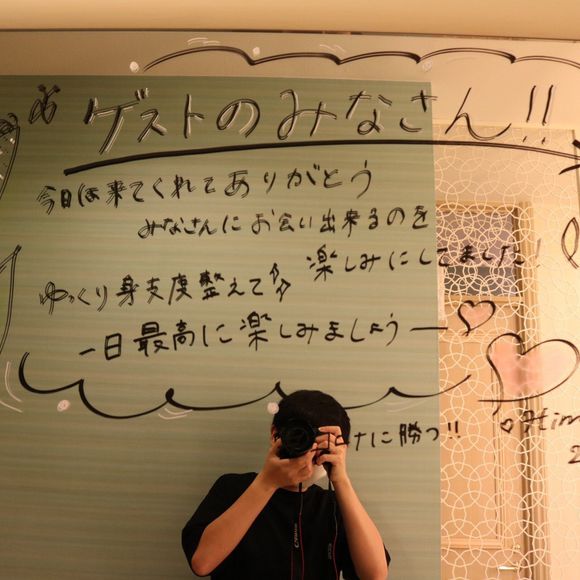 ゲストのみなさん!!
今日は来てくれてありがとう
みなさんにお会い出来るのを
楽しみにしてました!
ゆっくり身支度整えて
一日最高に楽しみましょうー♡
ナに勝つ!!
Canon